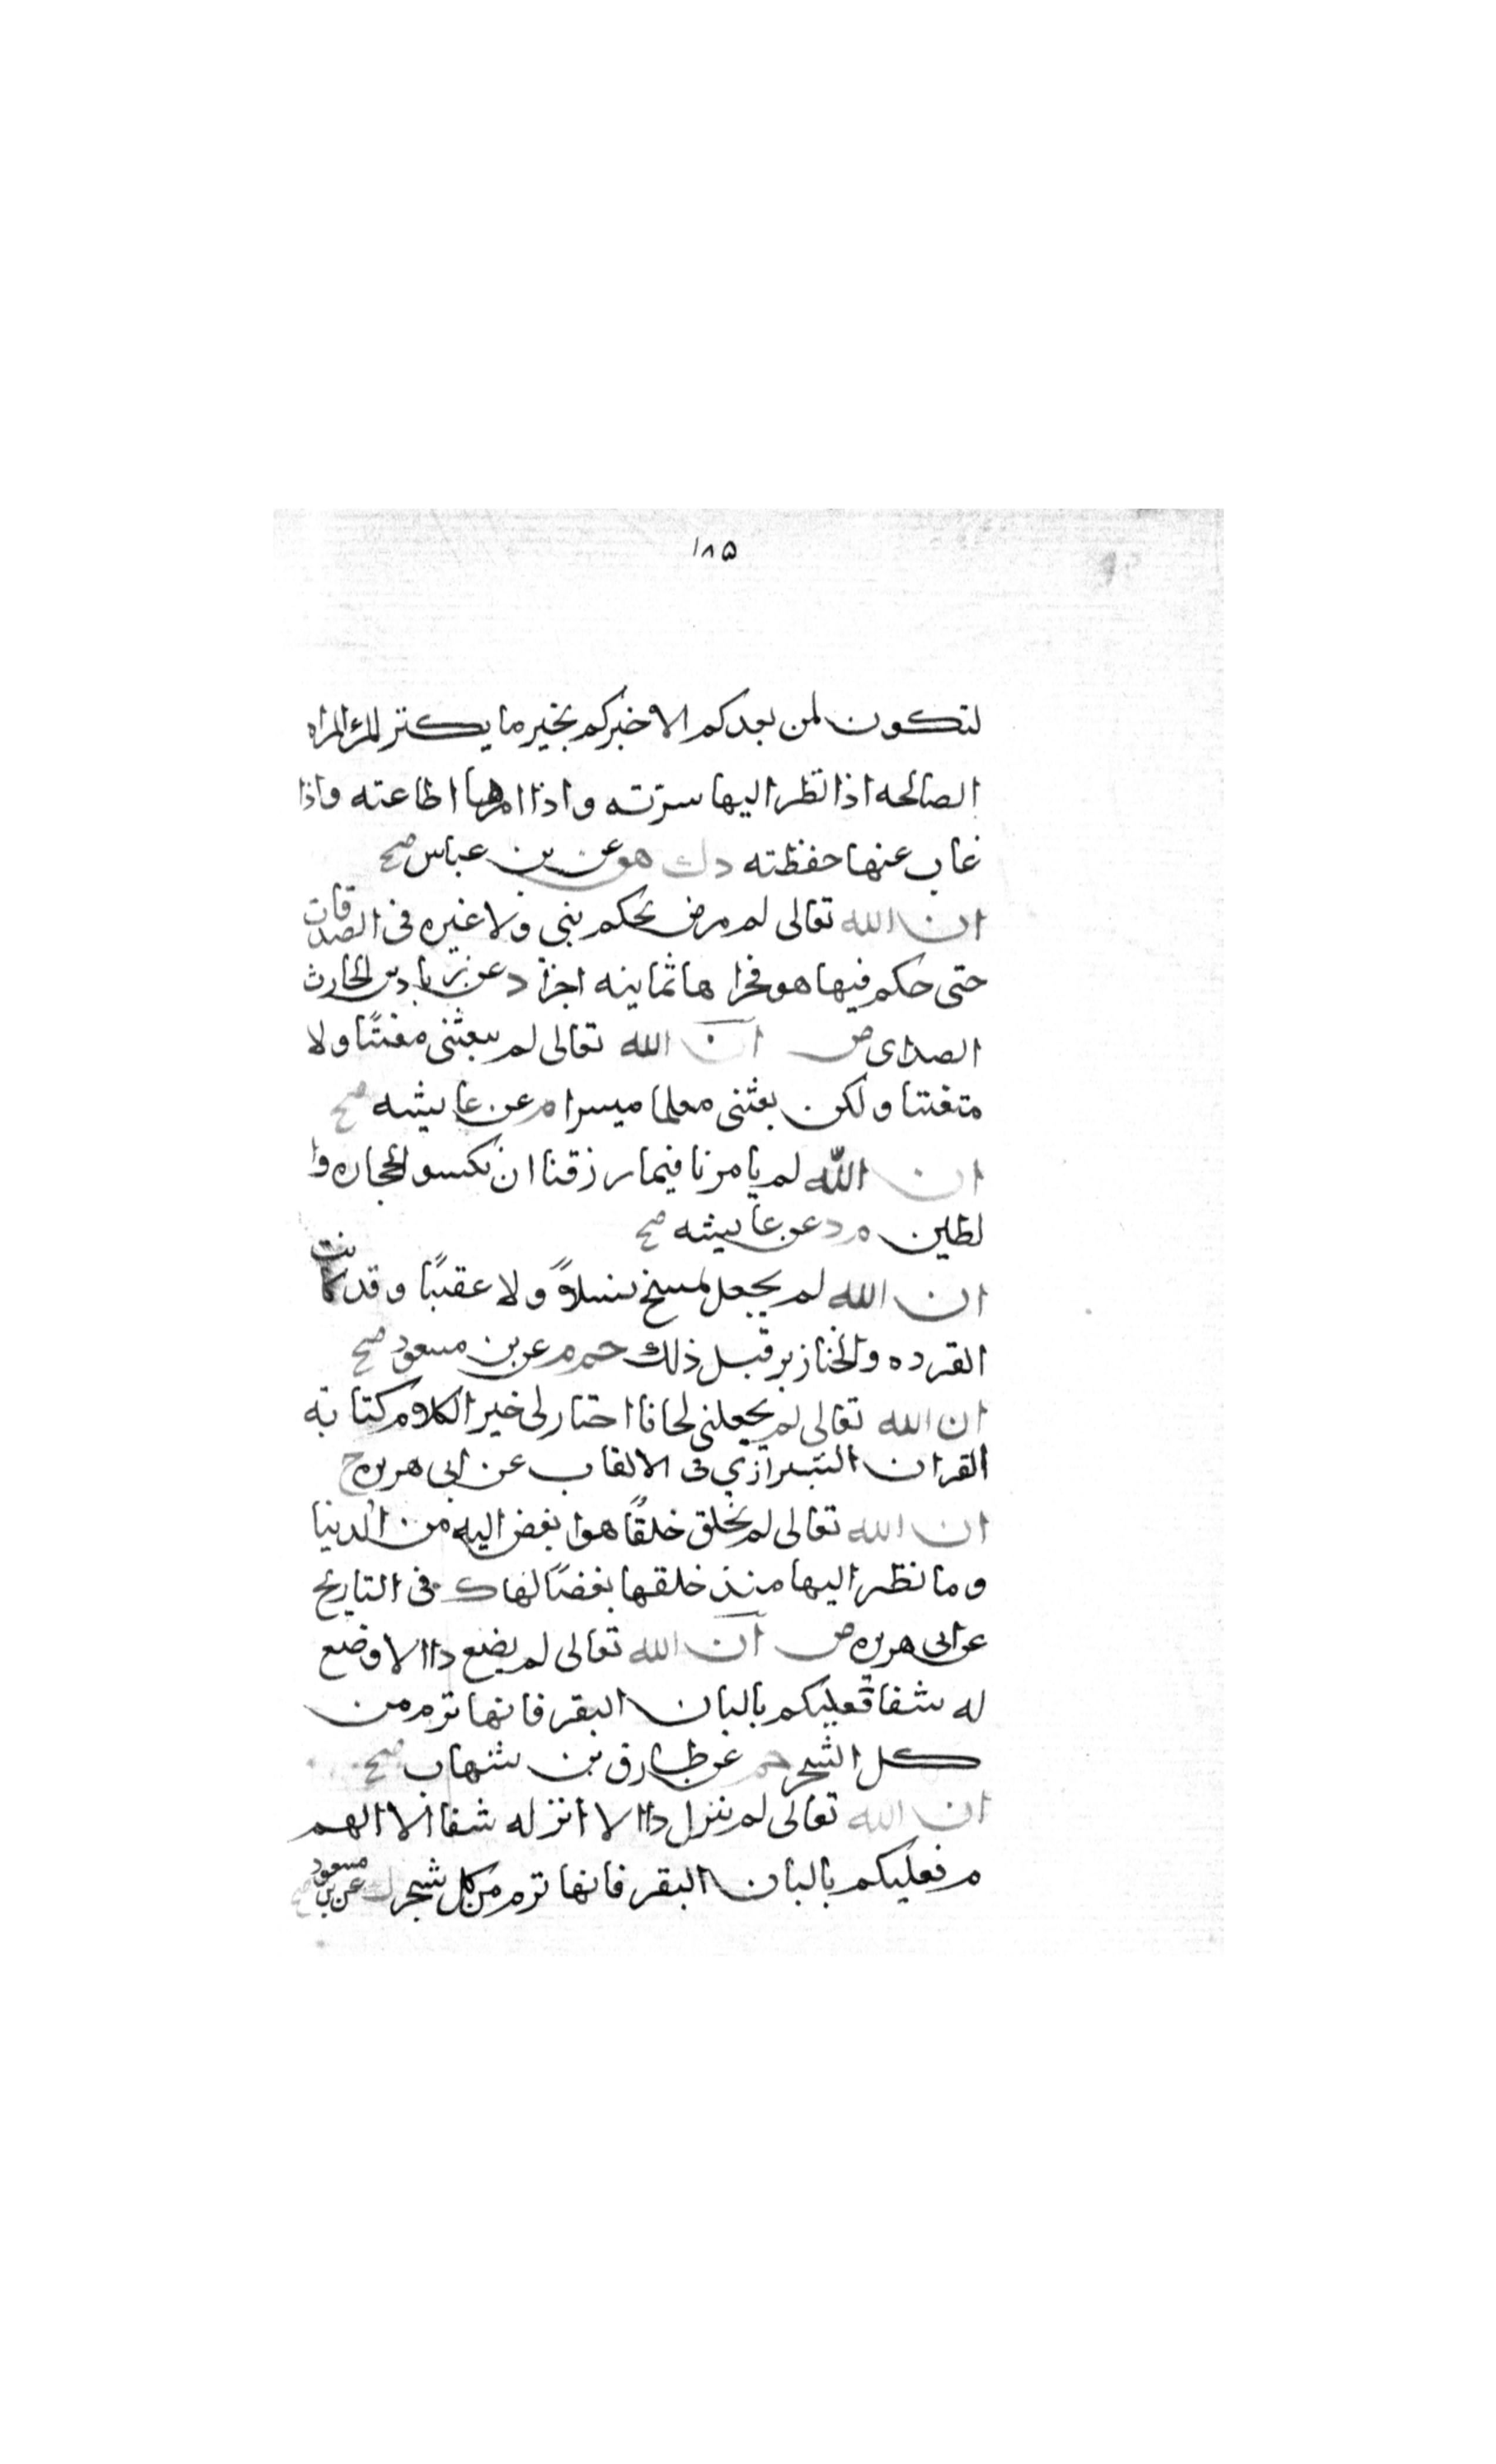 ١٨٥
لتكون لمن بعدكم الا اخبركم بخير ما يكنز المرء المراه
الصالحه اذا نظر اليها سرته واذا امرها اطاعته واذا
غاب عنها حفظته د ك هق عن بن عباس صح
ان الله تعالى لم يرض بحكم نبي ولا غيره في الصدقات
حتى حكم فيها هو فجزاها ثمانيه اجزا د عن زياد بن الحارث
الصداى ض ان الله تعالى لم يبعثني معنتًا ولا
متعنتا ولكن بعثني معلما ميسرا م عن عايشه صح
ان الله لم يامرنا فيما رزقنا ان نكسو الحجاره وا
لطين م د عن عايشه صح
ان الله لم يجعل لمسخ نسلاً ولا عقبًا وقد كانت
القرده والخنازير قبل ذلك حم م عن بن مسعود صح
ان الله تعالى لم يجعلني لحانا اختار لى خير الكلام كتابه
القران الشيرازي فى الالقاب عن ابى هريره ح
ان الله تعالى لم يخلق خلقًا هو ابغض اليه من الدنيا
وما نظر اليها منذ خلقها بغضًا لها ك فى التاريخ
عن ابى هريره ض ان الله تعالى لم يضع داا الا وضع
له شفا فعليكم بالبان البقر فانها ترم من
كل الشجر حم عن طارق بن شهاب صح
ان الله تعالى لم ينزل داا الا انزل له شفا الا الهر
م فعليكم بالبان البقر فانها ترم من كل شجر ك عن بن مسعود صح